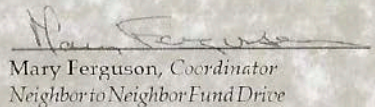 Mary Ferguson
Mary Ferguson, Coordinator
Neighbor to Neighbor Fund Drive